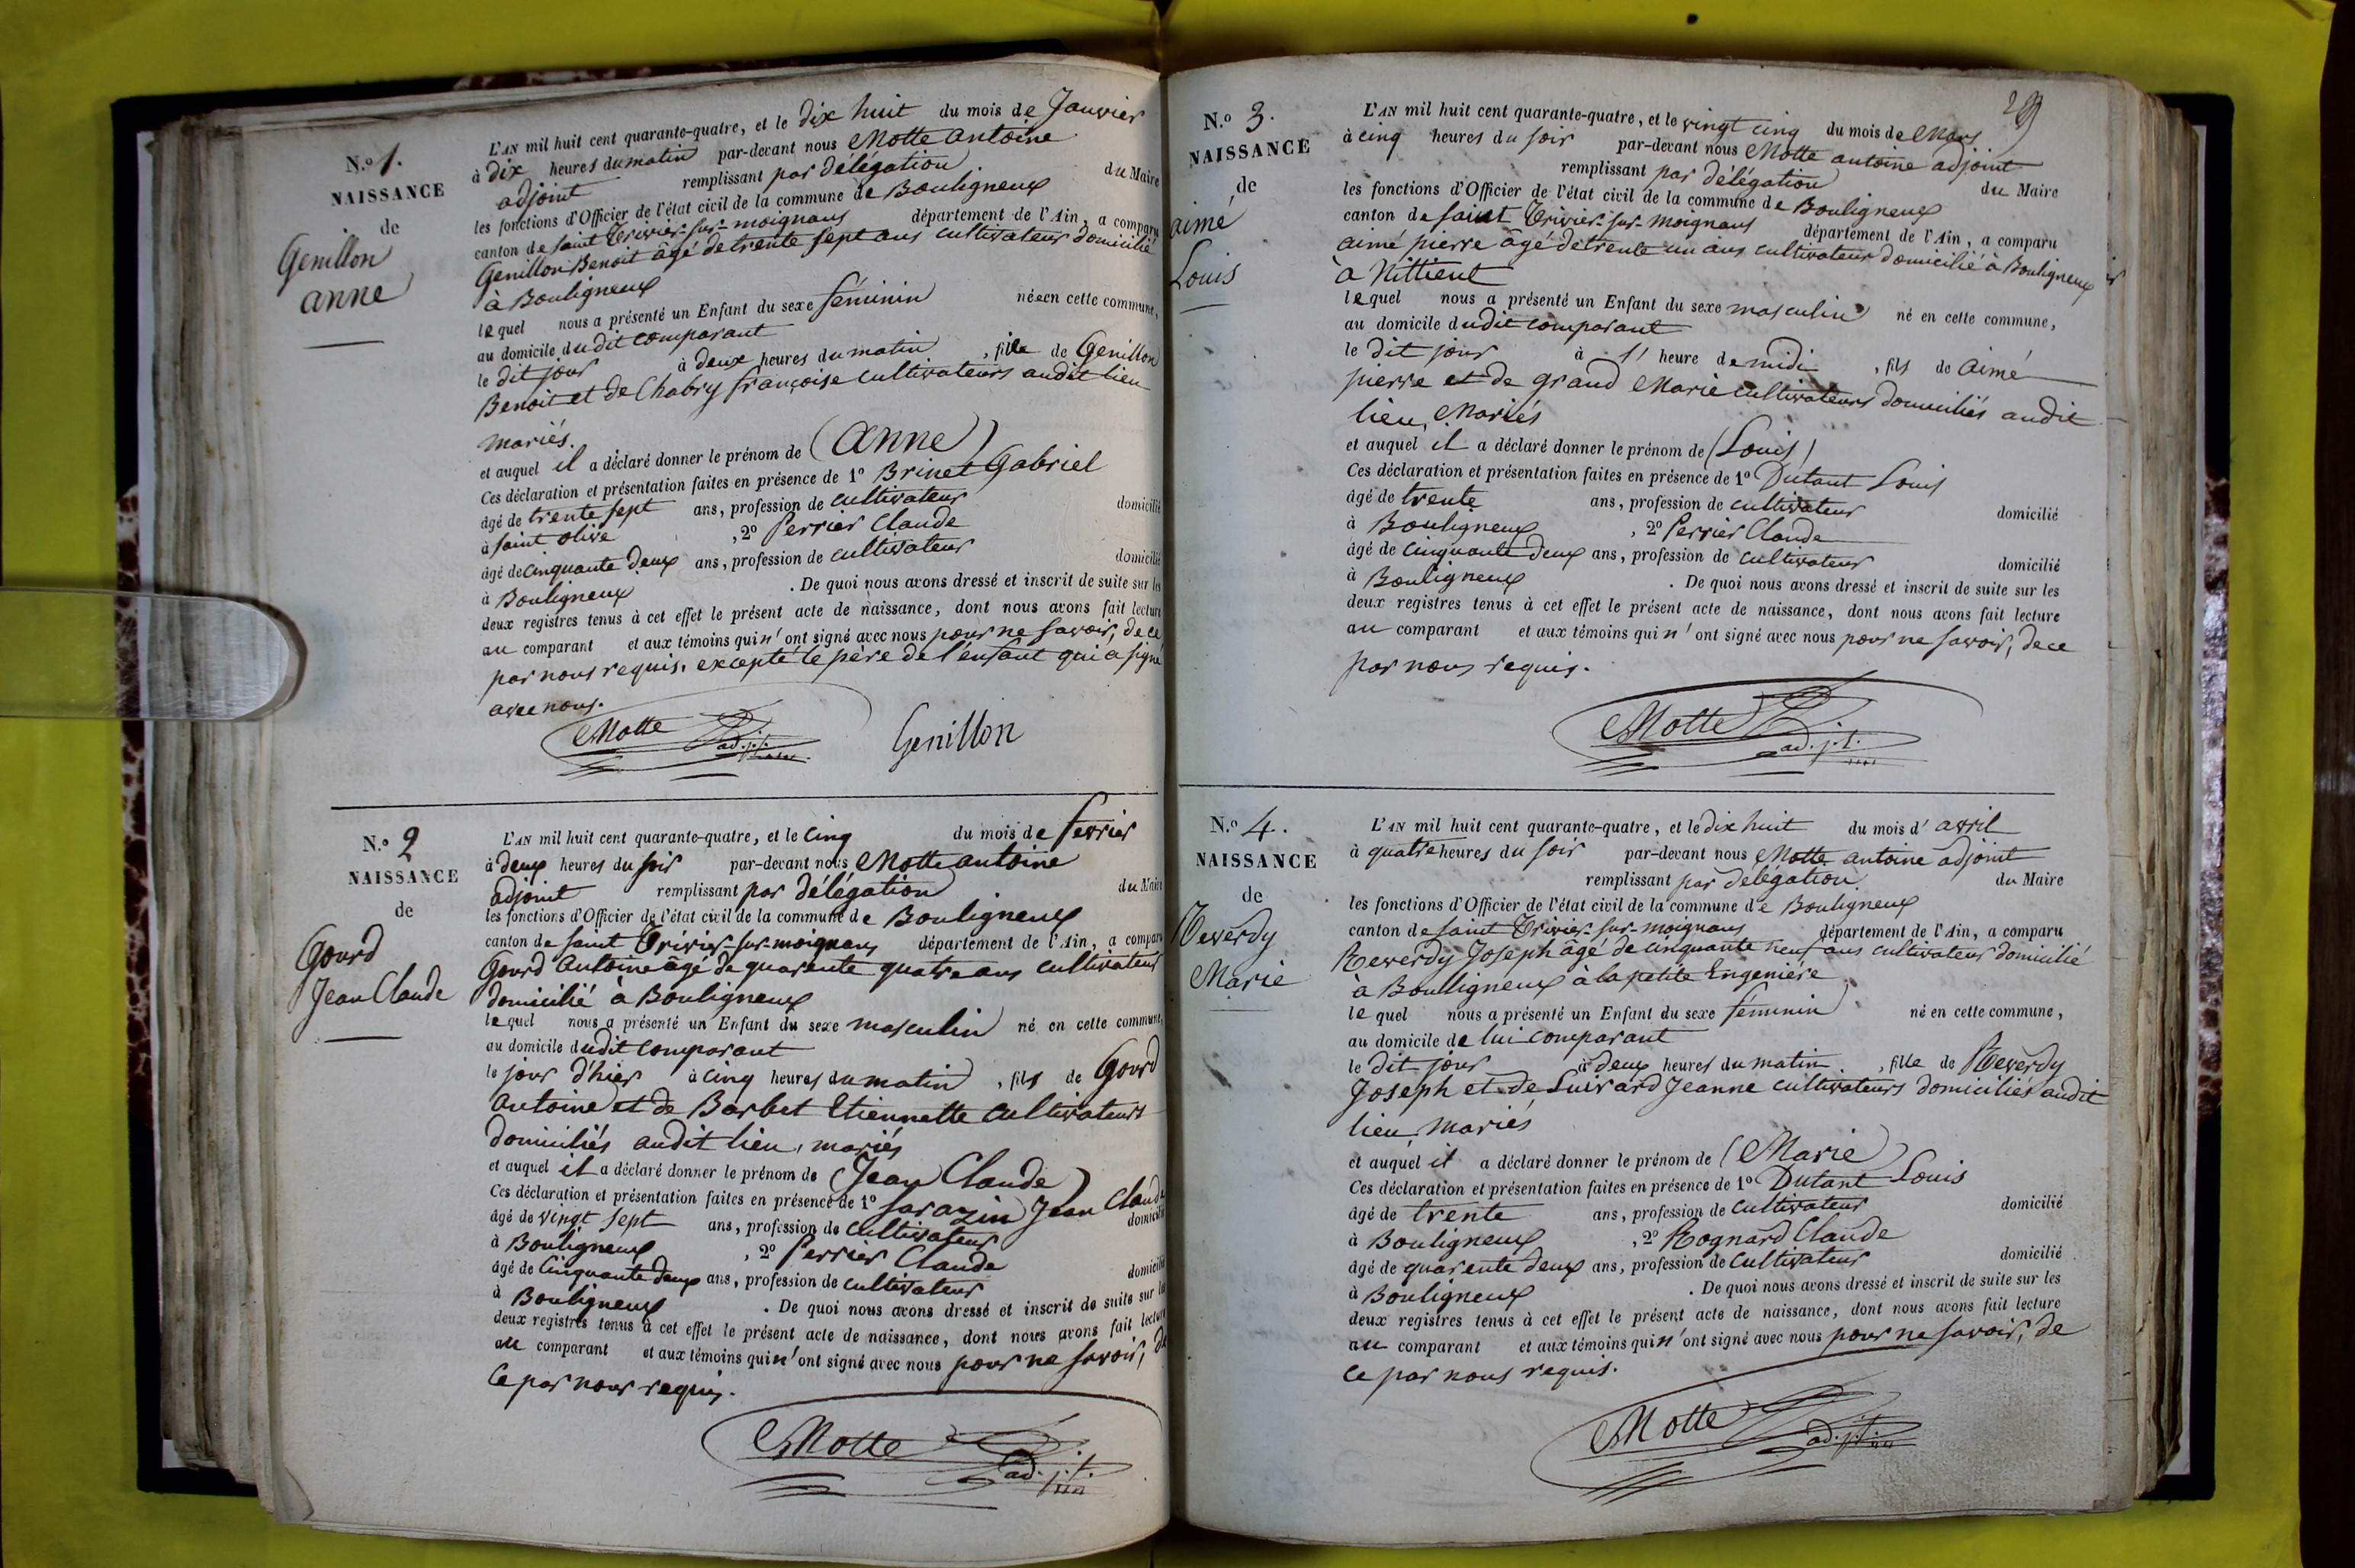 N.o 1.
NAISSANCE
de
Genillon
anne
L'AN mil huit cent quarante-quatre, et le dix huit du mois de Janvier
à dix heures du matin par-devant nous Motte antoine
adjoint remplissant par délégation du Maire
les fonctions d'Officier de l'état civil de la commune de Bouligneux
canton de saint Trivier-sur-moignans département de l'Ain, a comparu
Genillon Benoit âgé de trente sept ans cultivateur domicilié
à Bouligneux
lequel nous a présenté un Enfant du sexe féminin née en cette commune,
au domicile du dit comparant
le dit jour à deux heures du matin, fille de Genillon
Benoit et de Chabry françoise cultivateurs audit lieu
mariés.
et auquel il a déclaré donner le prénom de (anne)
Ces déclaration et présentation faites en présence de 1o Brinet Gabriel
âgé de trente sept ans, profession de cultivateur domicilié
à saint olive, 2o Perrier Claude
âgé de cinquante deux ans, profession de cultivateur domicilié
à Bouligneux. De quoi nous avons dressé et inscrit de suite sur les
deux registres tenus à cet effet le présent acte de naissance, dont nous avons fait lecture
au comparant et aux témoins qui n'ont signé avec nous pour ne savoir, de ce
par nous requis. excepté le père de l'enfant qui a signé
avec nous.
Motte adjt. Genillon
N.o 2
NAISSANCE
de
Gourd
Jean Claude
L'AN mil huit cent quarante-quatre, et le cinq du mois de fevrier
à deux heures du soir par-devant nous Motte antoine
adjoint remplissant par délégation du Maire
les fonctions d'Officier de l'état civil de la commune de Bouligneux
canton de saint Trivier-sur-moignans département de l'Ain, a comparu
Gourd antoine âgé de quarente quatre ans cultivateur
domicilié à Bouligneux
lequel nous a présenté un Enfant du sexe masculin né en cette commune,
au domicile dudit comparant
le jour d'hier à cinq heures du matin, fils de Gourd
antoine et de Barbet Etiennette cultivateurs
domiciliés audit lieu, mariés
et auquel il a déclaré donner le prénom de (Jean Claude)
Ces déclaration et présentation faites en présence de 1o sarazin Jean Claude
âgé de vingt sept ans, profession de cultivateur domicilié
à Bouligneux, 2o Perrier Claude
âgé de cinquante deux ans, profession de cultivateur domicilié
à Bouligneux. De quoi nous avons dressé et inscrit de suite sur les
deux registres tenus à cet effet le présent acte de naissance, dont nous avons fait lecture
au comparant et aux témoins qui n'ont signé avec nous pour ne savoir, de
ce par nous requis.
Motte adjt.
29
N.o 3.
NAISSANCE
de
aimé
Louis
L'AN mil huit cent quarante-quatre, et le vingt cinq du mois de Mars
à cinq heures du soir par-devant nous Motte antoine adjoint
remplissant par délégation du Maire
les fonctions d'Officier de l'état civil de la commune de Bouligneux
canton de saint Trivier-sur-moignans département de l'Ain, a comparu
aimé pierre âgé de trente un ans cultivateur domicilié à Bouligneux
à Nittient
lequel nous a présenté un Enfant du sexe masculin né en cette commune,
au domicile dudit comparant
le dit jour à 1' heure de midi, fils de aimé
pierre et de grand Marie cultivateurs domiciliés audit
lieu, Mariés
et auquel il a déclaré donner le prénom de (Louis)
Ces déclaration et présentation faites en présence de 1o Dutant Louis
âgé de trente ans, profession de cultivateur domicilié
à Bouligneux, 2o Perrier Claude
âgé de cinquante deux ans, profession de cultivateur domicilié
à Bouligneux. De quoi nous avons dressé et inscrit de suite sur les
deux registres tenus à cet effet le présent acte de naissance, dont nous avons fait lecture
au comparant et aux témoins qui n'ont signé avec nous pour ne savoir, de ce
par nous requis.
Motte adjt.
N.o 4.
NAISSANCE
de
Reverdy
Marie
L'AN mil huit cent quarante-quatre, et le dix huit du mois d'avril
à quatre heures du soir par-devant nous Motte antoine adjoint
remplissant par délégation du Maire
les fonctions d'Officier de l'état civil de la commune de Bouligneux
canton de saint Trivier-sur-moignans département de l'Ain, a comparu
Reverdy Joseph âgé de cinquante neuf ans cultivateur domicilié
à Boulligneux à la petite Engeniére
lequel nous a présenté un Enfant du sexe féminin né en cette commune,
au domicile de lui comparant
le dit jour à deux heures du matin, fille de Reverdy
Joseph et de Suivard Jeanne cultivateurs domiciliés audit
lieu, mariés
et auquel il a déclaré donner le prénom de (Marie)
Ces déclaration et présentation faites en présence de 1o Dutant Louis
âgé de trente ans, profession de cultivateur domicilié
à Bouligneux, 2o Rognard Claude
âgé de quarente deux ans, profession de cultivateur domicilié
à Bouligneux. De quoi nous avons dressé et inscrit de suite sur les
deux registres tenus à cet effet le présent acte de naissance, dont nous avons fait lecture
au comparant et aux témoins qui n'ont signé avec nous pour ne savoir, de
ce par nous requis.
Motte adjt.